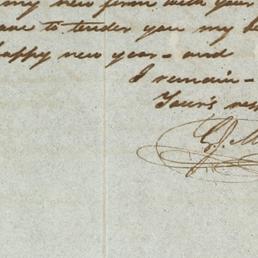 my new firm with your
to tender you my be
happy new year - and
I remain -
Your's res